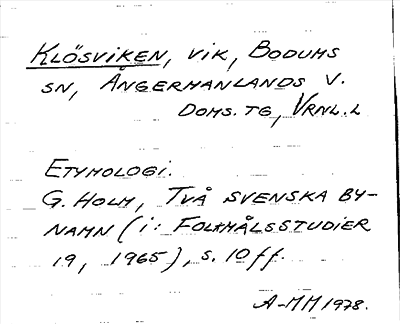 KLÖSVIKEN, VIK, BODUMS
SN, ÅNGERMANLANDS V.
DOMS. TG, VRNL. L
ETYMOLOGI.
G. HOLM, TVÅ SVENSKA BY-
NAMN (I: FOLKMÅLSSTUDIER
19, 1965), S. 10 ff.
A-MM 1978.